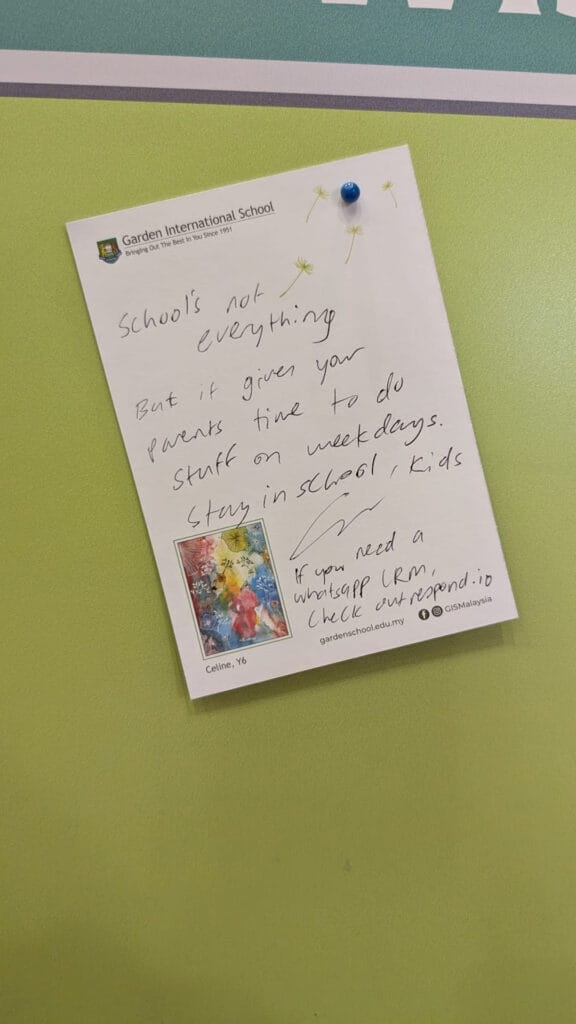 Garden International School
Bringing Out The Best In You Since 1951
School's not
everything
But it gives your
parents time to do
stuff on weekdays.
Stay in school, kids
If you need a
whatsapp CRM,
check out respond.io
GISMalaysia
gardenschool.edu.my
Celine, Y6